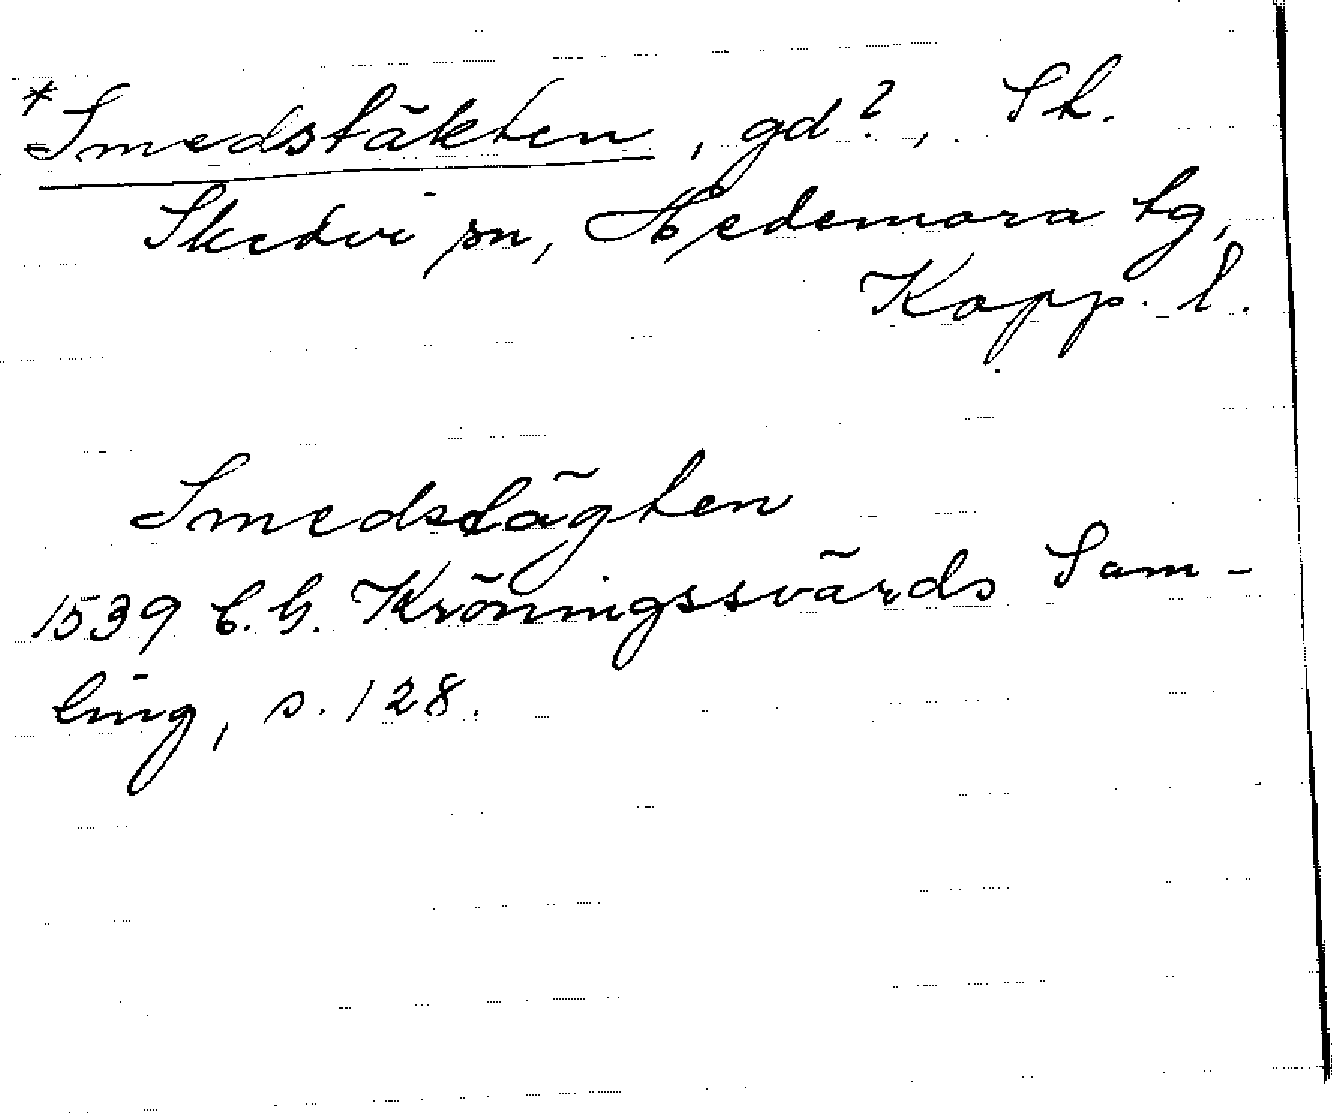 *Smedstäkten, gd?, St.
Skedvi sn, Hedemora tg,
Kopp. l.
Smedstägten
1539 C. G. Kröningssvärds Sam-
ling, s. 128.